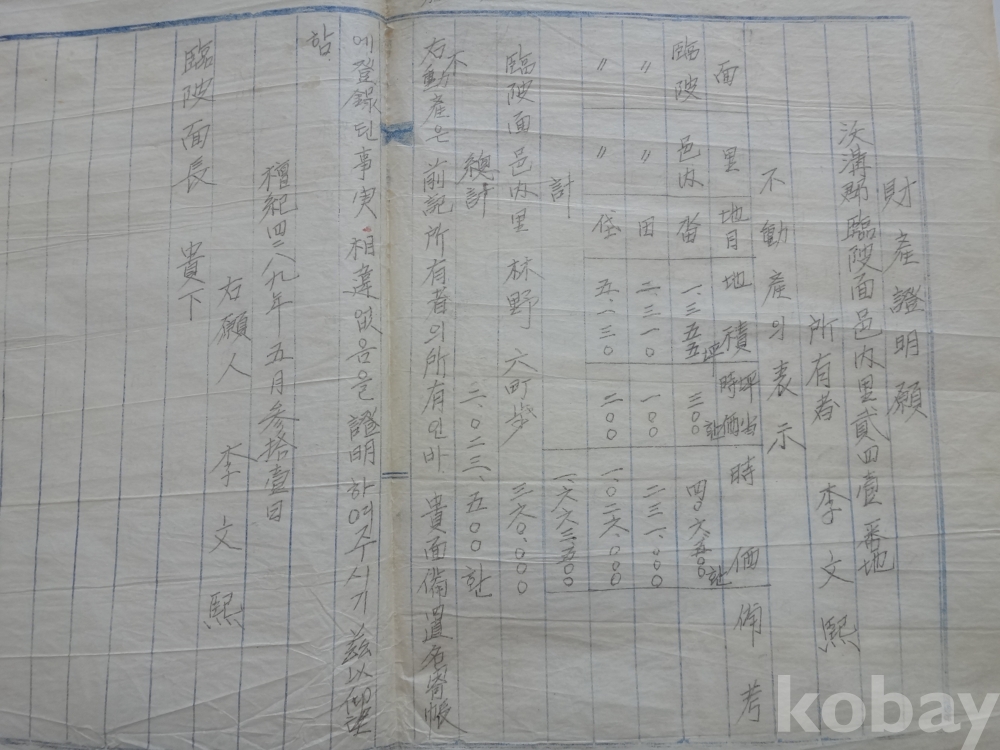 財産證明願
沃溝郡臨陂面邑內里貳四壹番地
所有者 李文熙
不動産의表示
面 里 地目 地積 坪当時価 時価 備考
臨陂 邑內 畓 一.三五五坪 三〇〇한 四〇六.五〇〇한
〃 〃 田 二.三一〇 一〇〇 二三一.〇〇〇
〃 〃 垈 五.一三〇 二〇〇 一.〇二六.〇〇〇
計 一.六六三.五〇〇
臨陂面邑內里 林野 六町步 三六〇.〇〇〇
總計 二.〇二三.五〇〇한
右不動産은 前記所有者의所有인바 貴面備置名寄帳
에登錄된事実 相違없음을 證明하여주시기 玆以仰望
함
檀紀四二八九年 五月參拾壹日
右願人 李文熙
臨陂面長 貴下
kobay